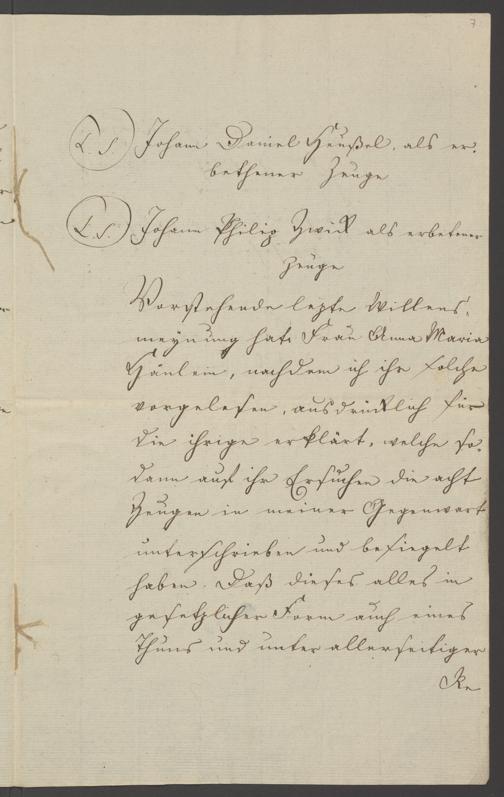 7.
L.S. Johann Daniel Heußel, als er-
bethener Zeuge
L.S. Johann Philip Zwick als erbetener
Zeuge
Vorstehende lezte Willens-
meynung hat Frau Anna Maria
Hänlein, nachdem ich ihr solche
vorgelesen, ausdrücklich für
die ihrige erklärt, welche so-
dann auf ihr Ersuchen die acht
Zeugen in meiner Gegenwart
unterschrieben und besiegelt
haben. Daß dieses alles in
gesetzlicher Form auch eines
Thuns und unter allerseitiger
Re